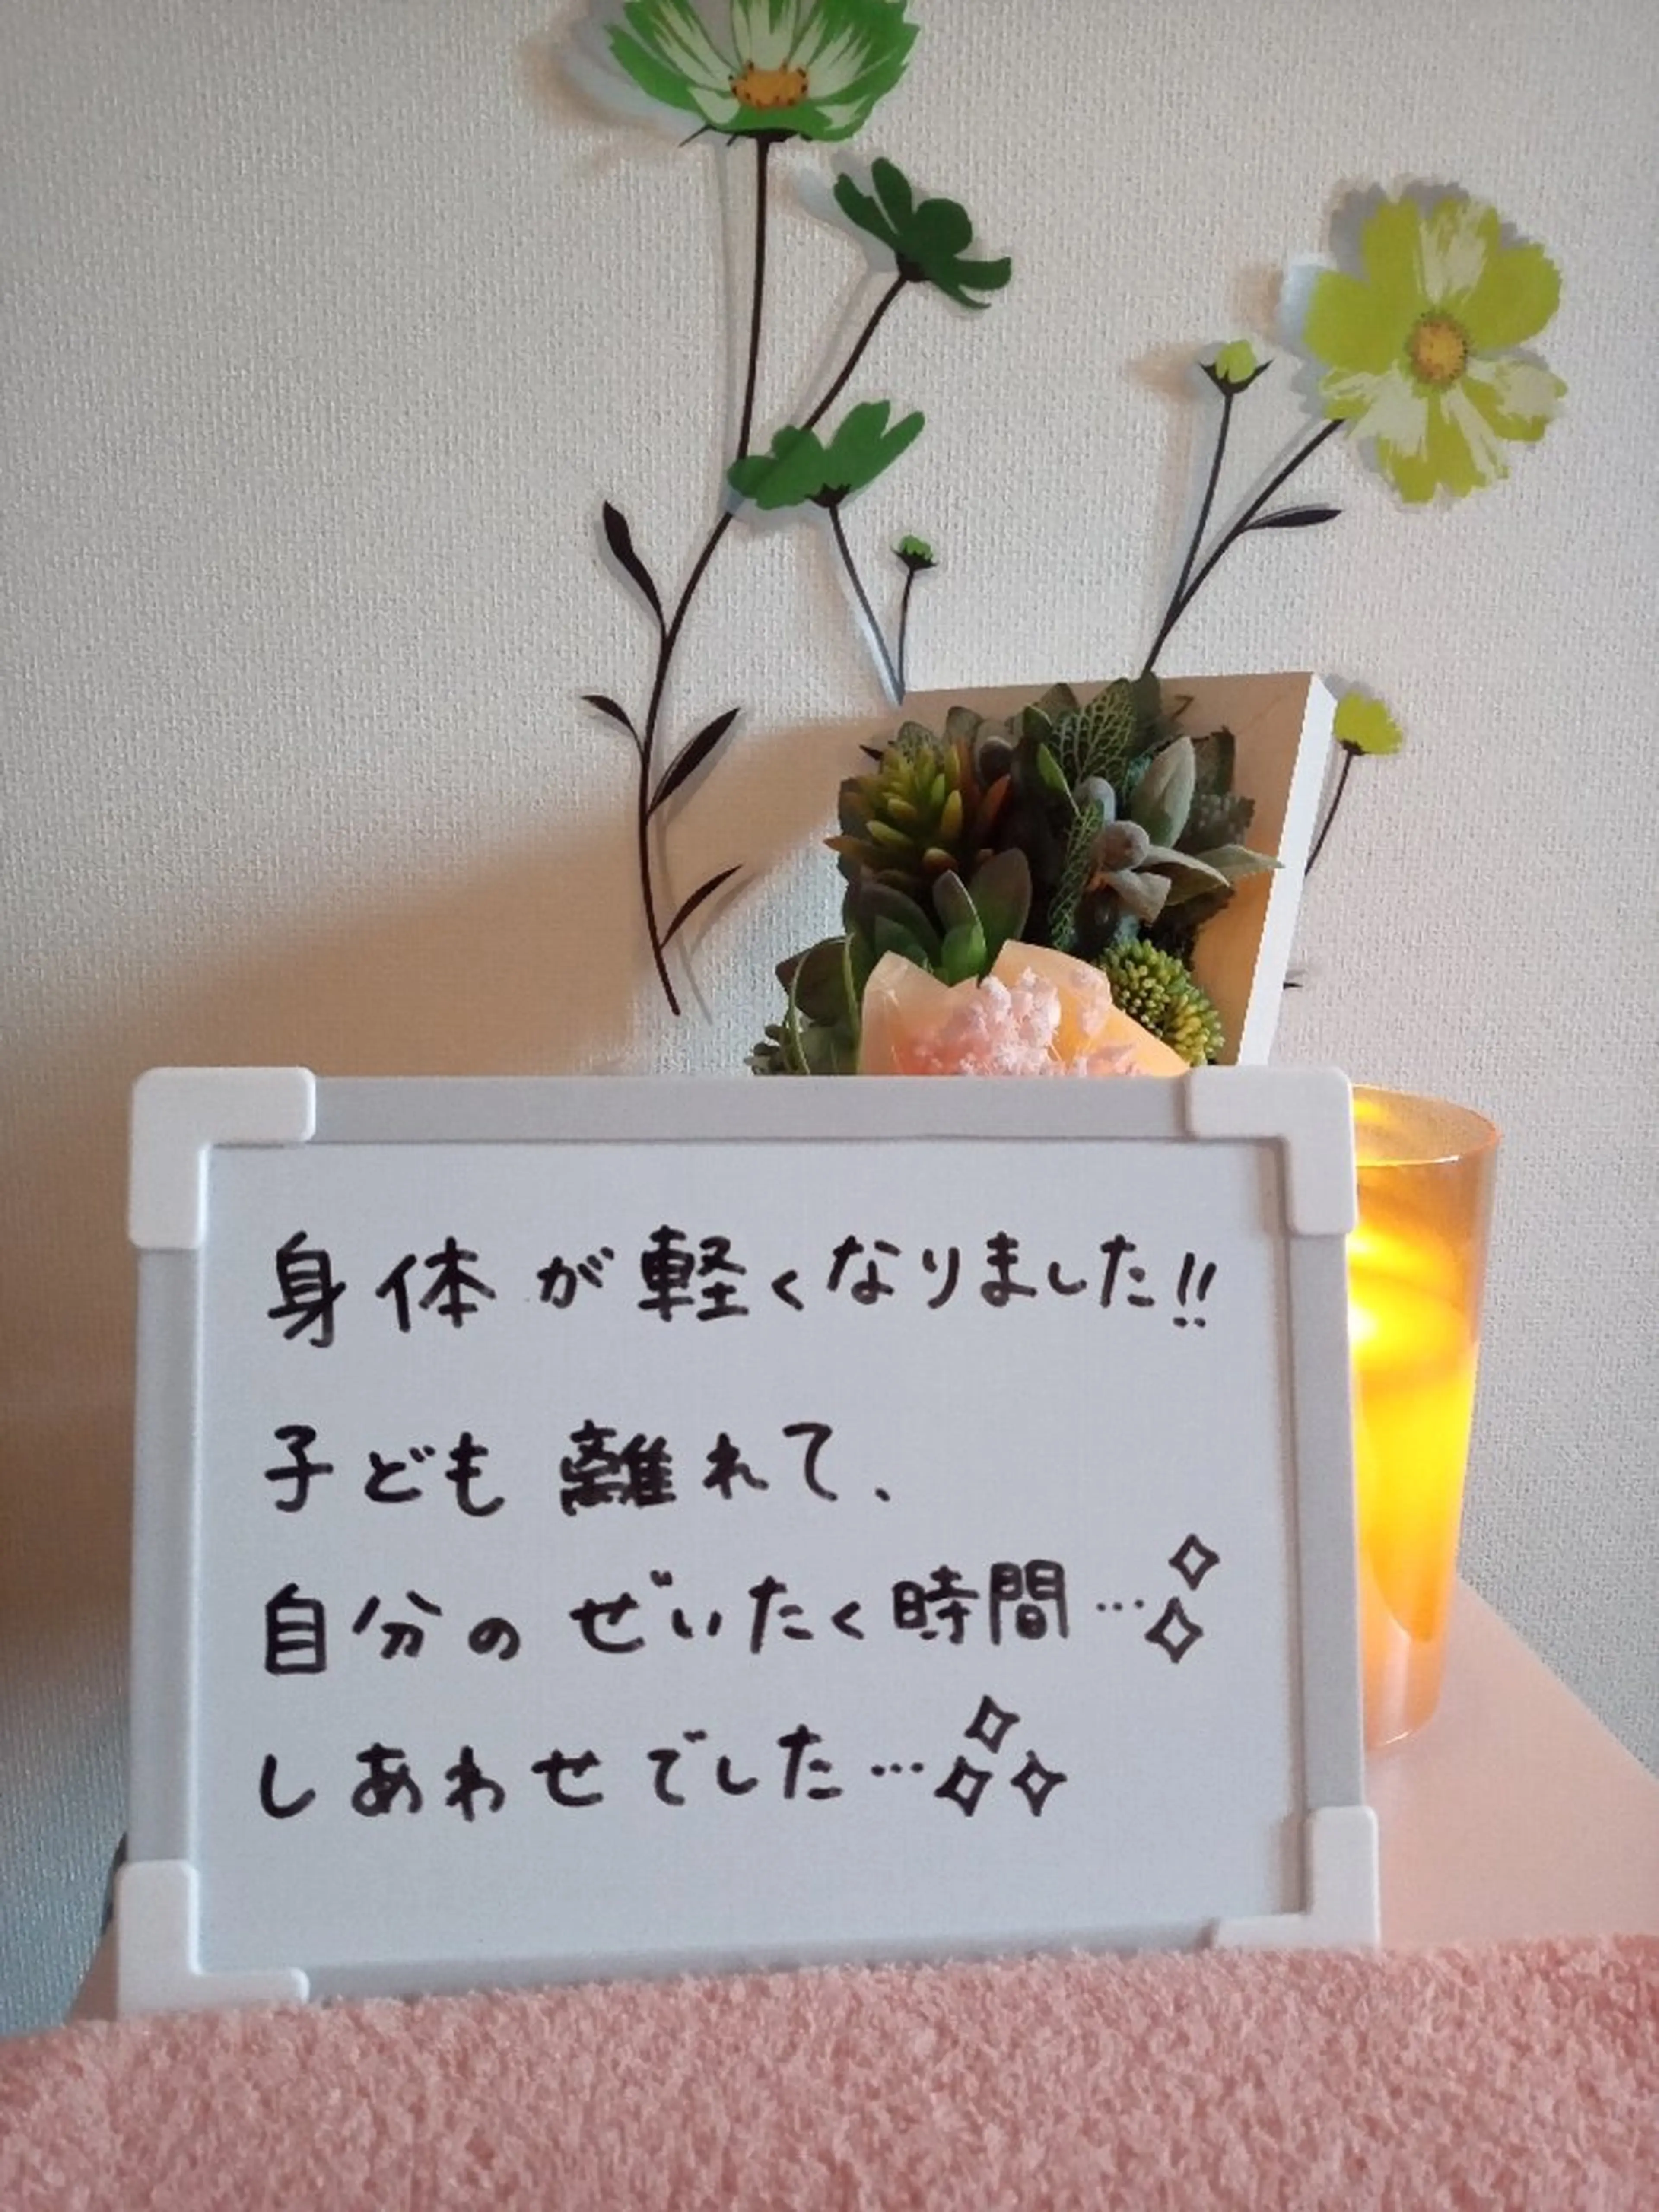 身体が軽くなりました!!
子ども離れて、
自分のぜいたく時間…✧✧
しあわせでした…✧✧✧